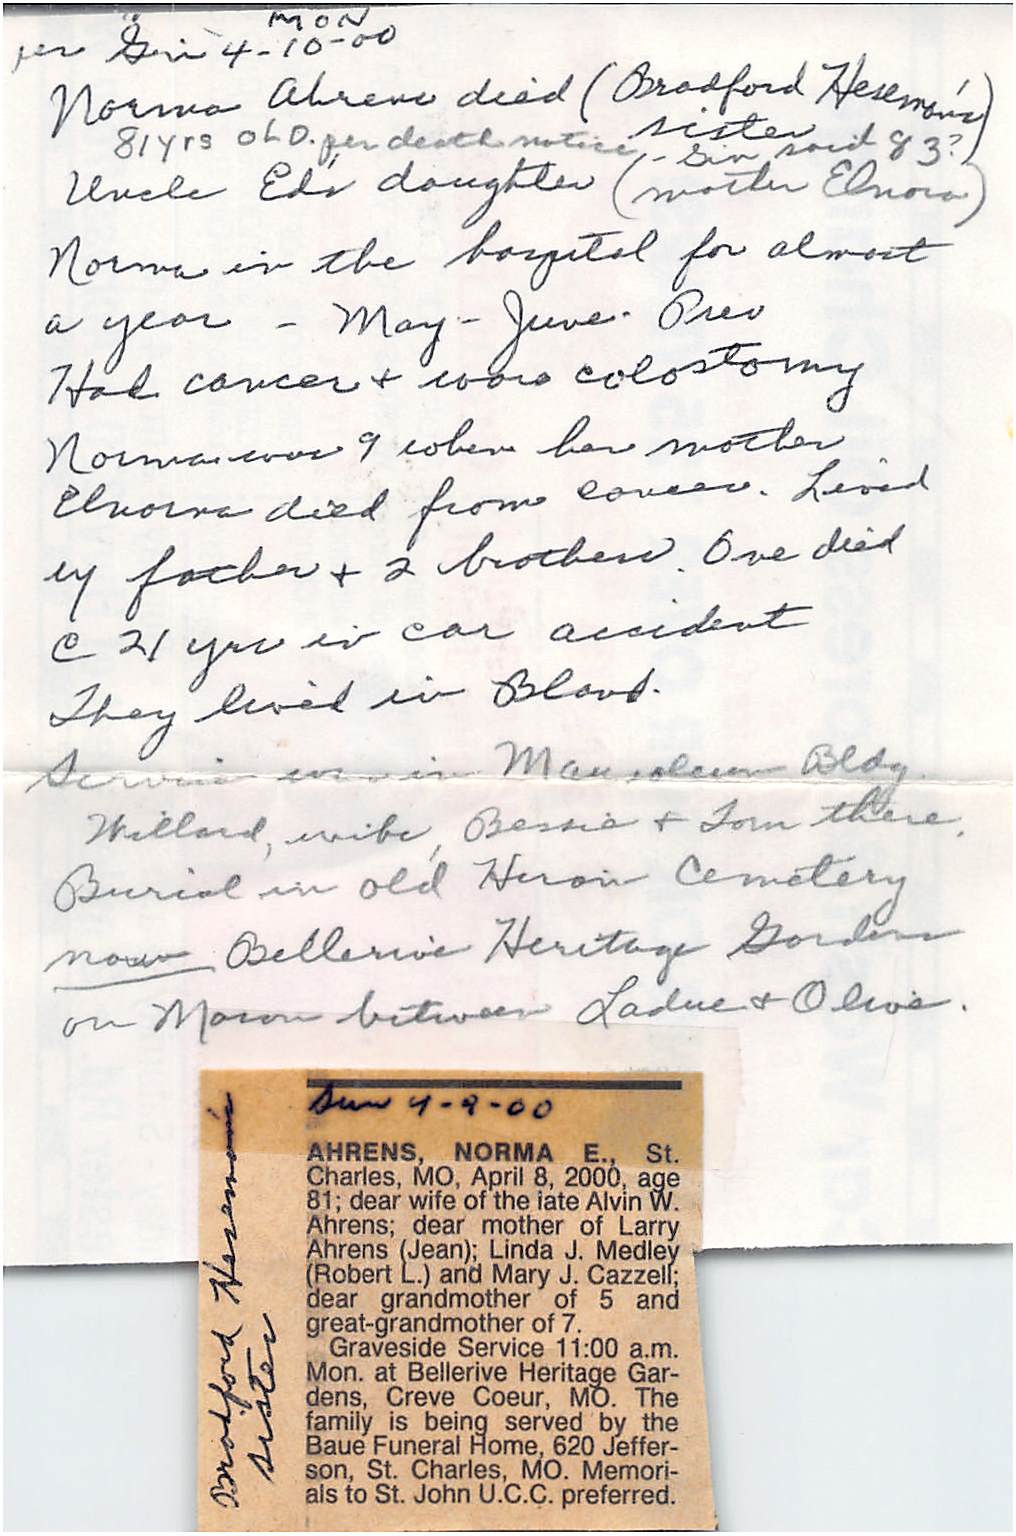 MON
per Gin 4-10-00
Norma Ahrens died (Bradford Heseman's
sister)
81 yrs old. per death notice - Gin said 83?
Uncle Ed's daughter (mother Elnora)
Norma in the hospital for almost
a year - May - June. Prev
Had cancer + wore colostomy
Norma was 9 when her mother
Elnorma died from cancer. Lived
w/ father + 2 brothers. One died
@ 21 yrs in car accident
They lived in Bland.
Service was in Mausoleum Bldg.
Willard, wife, Bessie + Tom there.
Burial in old Hiram Cemetery
now Bellerive Heritage Gardens
on Mason between Ladue + Olive.
Sun 4-9-00
AHRENS, NORMA E., St.
Charles, MO, April 8, 2000, age
81; dear wife of the late Alvin W.
Ahrens; dear mother of Larry
Ahrens (Jean); Linda J. Medley
(Robert L.) and Mary J. Cazzell;
dear grandmother of 5 and
great-grandmother of 7.
Graveside Service 11:00 a.m.
Mon. at Bellerive Heritage Gar-
dens, Creve Coeur, MO. The
family is being served by the
Baue Funeral Home, 620 Jeffer-
son, St. Charles, MO. Memori-
als to St. John U.C.C. preferred.
Bradford Heseman's
sister